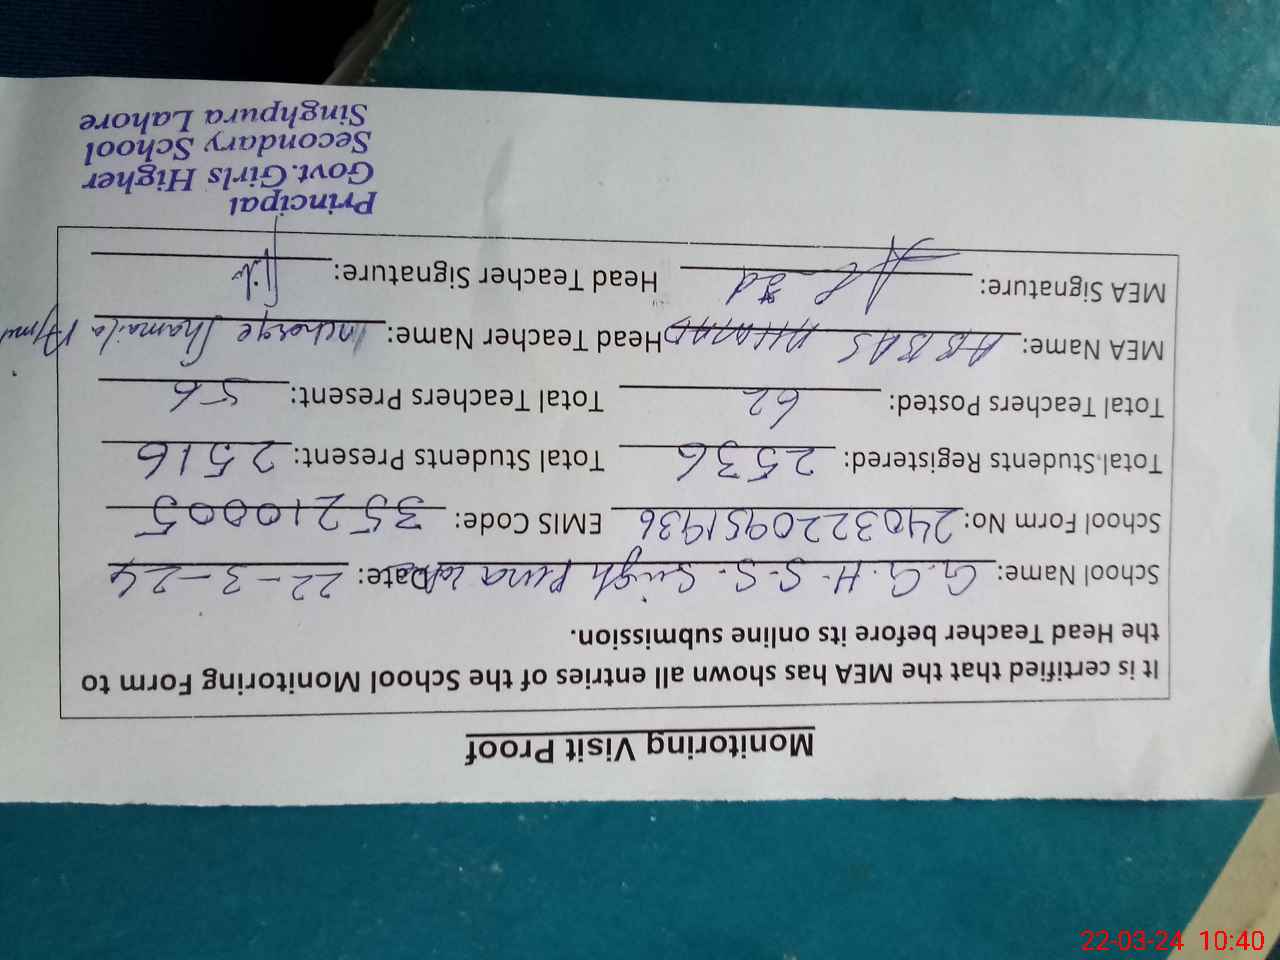 Monitoring Visit Proof
It is certified that the MEA has shown all entries of the School Monitoring Form to
the Head Teacher before its online submission.
School Name: G.G.H.S.S. Singh Pura Date: 22-3-24
School Form No: 2403220951936 EMIS Code: 35210005
Total Students Registered: 2536 Total Students Present: 2516
Total Teachers Posted: 62 Total Teachers Present: 56
MEA Name: ABBAS Head Teacher Name: Incharge Shamaila
MEA Signature: Head Teacher Signature:
Principal
Govt.Girls Higher
Secondary School
Singhpura Lahore
22-03-24 10:40